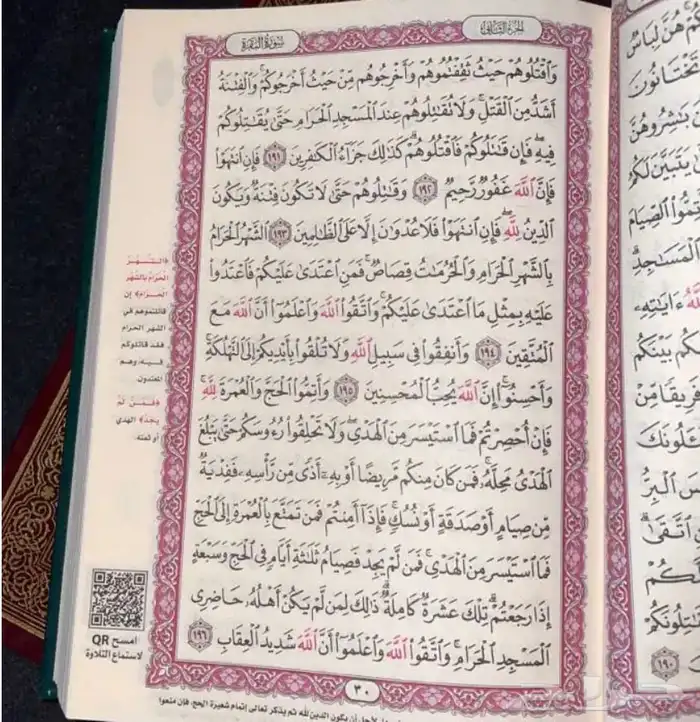 الجزء الثاني
سورة البقرة
وَٱقۡتُلُوهُمۡ حَيۡثُ ثَقِفۡتُمُوهُمۡ وَأَخۡرِجُوهُم مِّنۡ حَيۡثُ أَخۡرَجُوكُمۡۚ وَٱلۡفِتۡنَةُ
أَشَدُّ مِنَ ٱلۡقَتۡلِۚ وَلَا تُقَٰتِلُوهُمۡ عِندَ ٱلۡمَسۡجِدِ ٱلۡحَرَامِ حَتَّىٰ يُقَٰتِلُوكُمۡ
فِيهِۖ فَإِن قَٰتَلُوكُمۡ فَٱقۡتُلُوهُمۡۗ كَذَٰلِكَ جَزَآءُ ٱلۡكَٰفِرِينَ ١٩١ فَإِنِ ٱنتَهَوۡاْ
فَإِنَّ ٱللَّهَ غَفُورٞ رَّحِيمٞ ١٩٢ وَقَٰتِلُوهُمۡ حَتَّىٰ لَا تَكُونَ فِتۡنَةٞ وَيَكُونَ
ٱلدِّينُ لِلَّهِۖ فَإِنِ ٱنتَهَوۡاْ فَلَا عُدۡوَٰنَ إِلَّا عَلَى ٱلظَّٰلِمِينَ ١٩٣ ٱلشَّهۡرُ ٱلۡحَرَامُ
بِٱلشَّهۡرِ ٱلۡحَرَامِ وَٱلۡحُرُمَٰتُ قِصَاصٞۚ فَمَنِ ٱعۡتَدَىٰ عَلَيۡكُمۡ فَٱعۡتَدُواْ
عَلَيۡهِ بِمِثۡلِ مَا ٱعۡتَدَىٰ عَلَيۡكُمۡۚ وَٱتَّقُواْ ٱللَّهَ وَٱعۡلَمُوٓاْ أَنَّ ٱللَّهَ مَعَ
ٱلۡمُتَّقِينَ ١٩٤ وَأَنفِقُواْ فِي سَبِيلِ ٱللَّهِ وَلَا تُلۡقُواْ بِأَيۡدِيكُمۡ إِلَى ٱلتَّهۡلُكَةِ
وَأَحۡسِنُوٓاْۚ إِنَّ ٱللَّهَ يُحِبُّ ٱلۡمُحۡسِنِينَ ١٩٥ وَأَتِمُّواْ ٱلۡحَجَّ وَٱلۡعُمۡرَةَ لِلَّهِۚ
فَإِنۡ أُحۡصِرۡتُمۡ فَمَا ٱسۡتَيۡسَرَ مِنَ ٱلۡهَدۡيِۖ وَلَا تَحۡلِقُواْ رُءُوسَكُمۡ حَتَّىٰ يَبۡلُغَ
ٱلۡهَدۡيُ مَحِلَّهُۥۚ فَمَن كَانَ مِنكُم مَّرِيضًا أَوۡ بِهِۦٓ أَذٗى مِّن رَّأۡسِهِۦ فَفِدۡيَةٞ
مِّن صِيَامٍ أَوۡ صَدَقَةٍ أَوۡ نُسُكٖۚ فَإِذَآ أَمِنتُمۡ فَمَن تَمَتَّعَ بِٱلۡعُمۡرَةِ إِلَى ٱلۡحَجِّ
فَمَا ٱسۡتَيۡسَرَ مِنَ ٱلۡهَدۡيِۚ فَمَن لَّمۡ يَجِدۡ فَصِيَامُ ثَلَٰثَةِ أَيَّامٖ فِي ٱلۡحَجِّ وَسَبۡعَةٍ
إِذَا رَجَعۡتُمۡۗ تِلۡكَ عَشَرَةٞ كَامِلَةٞۗ ذَٰلِكَ لِمَن لَّمۡ يَكُنۡ أَهۡلُهُۥ حَاضِرِي
ٱلۡمَسۡجِدِ ٱلۡحَرَامِۚ وَٱتَّقُواْ ٱللَّهَ وَٱعۡلَمُوٓاْ أَنَّ ٱللَّهَ شَدِيدُ ٱلۡعِقَابِ ١٩٦
٣٠
﴿الشَّهْرُ
الحَرَامُ بالشَّهْرِ
الحَرَامِ﴾ إن
قاتلتموهم في
الشهر الحرام
فقد قاتلوكم
فيه، وهم
المعتدون.
﴿فَمَنْ لَمْ
يَجِدْ﴾ الهدي
أو ثمنه.
امسح QR
لاستماع التلاوة
أن يكون الدين لله ثم يذكر تعالى إتمام شعيرة الحج، فإن منعوا
هُنَّ لِبَاسٞ
تَخۡتَانُونَ
تُبَٰشِرُوهُنَّ
يَتَبَيَّنَ لَكُمُ
أَتِمُّواْ ٱلصِّيَامَ
ٱلۡمَسَٰجِدِۗ
ءَايَٰتِهِۦ
بَيۡنَكُم
فَرِيقٗا مِّنۡ
ٱلۡبِرُّ
ٱتَّقَىٰۗ
١٩٠